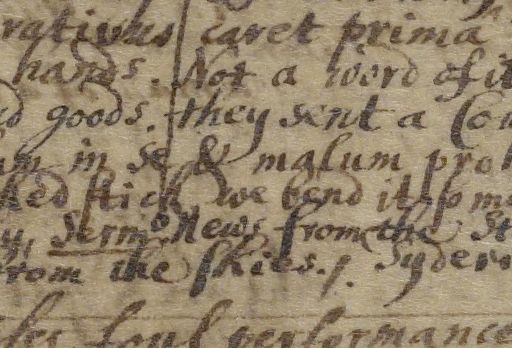 rativus caret prima
hands. Not a word of it
goods. they sent a Cou
in se & malum pro
ked stick we bend it
Sermo News from the St
from the skies. Syder
foul performance